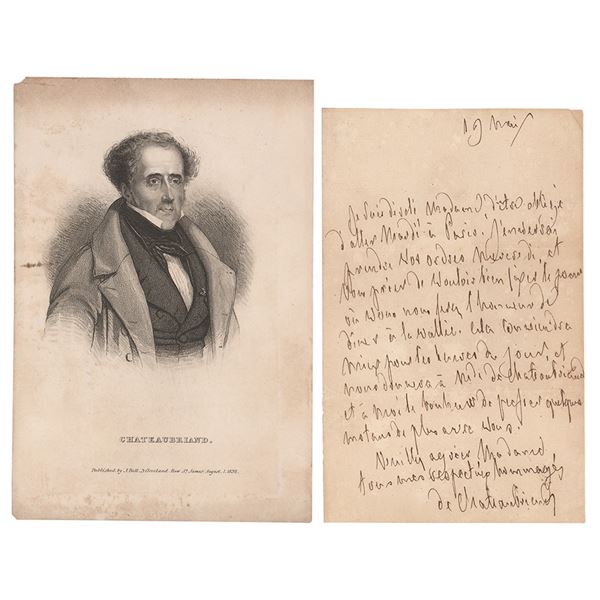 CHATEAUBRIAND.
Published by J. Bull, Cleveland Row St. James August 1. 1832.
19 mai
Je suis désolé Madame d'être obligé
d'aller Mardi à Paris. J'irai
prendre vos ordres mercredi, et
vous prier de vouloir bien fixer le jour
où vous nous ferez l'honneur de
dîner à la vallée. Cela conviendra
mieux pour les heures du jour, et
nous donnera à Mde de Chateaubriand
et à moi le bonheur de passer quelques
instans de plus avec vous.
Veuillez agréer Madame
tous mes respectueux hommages
de Chateaubriand